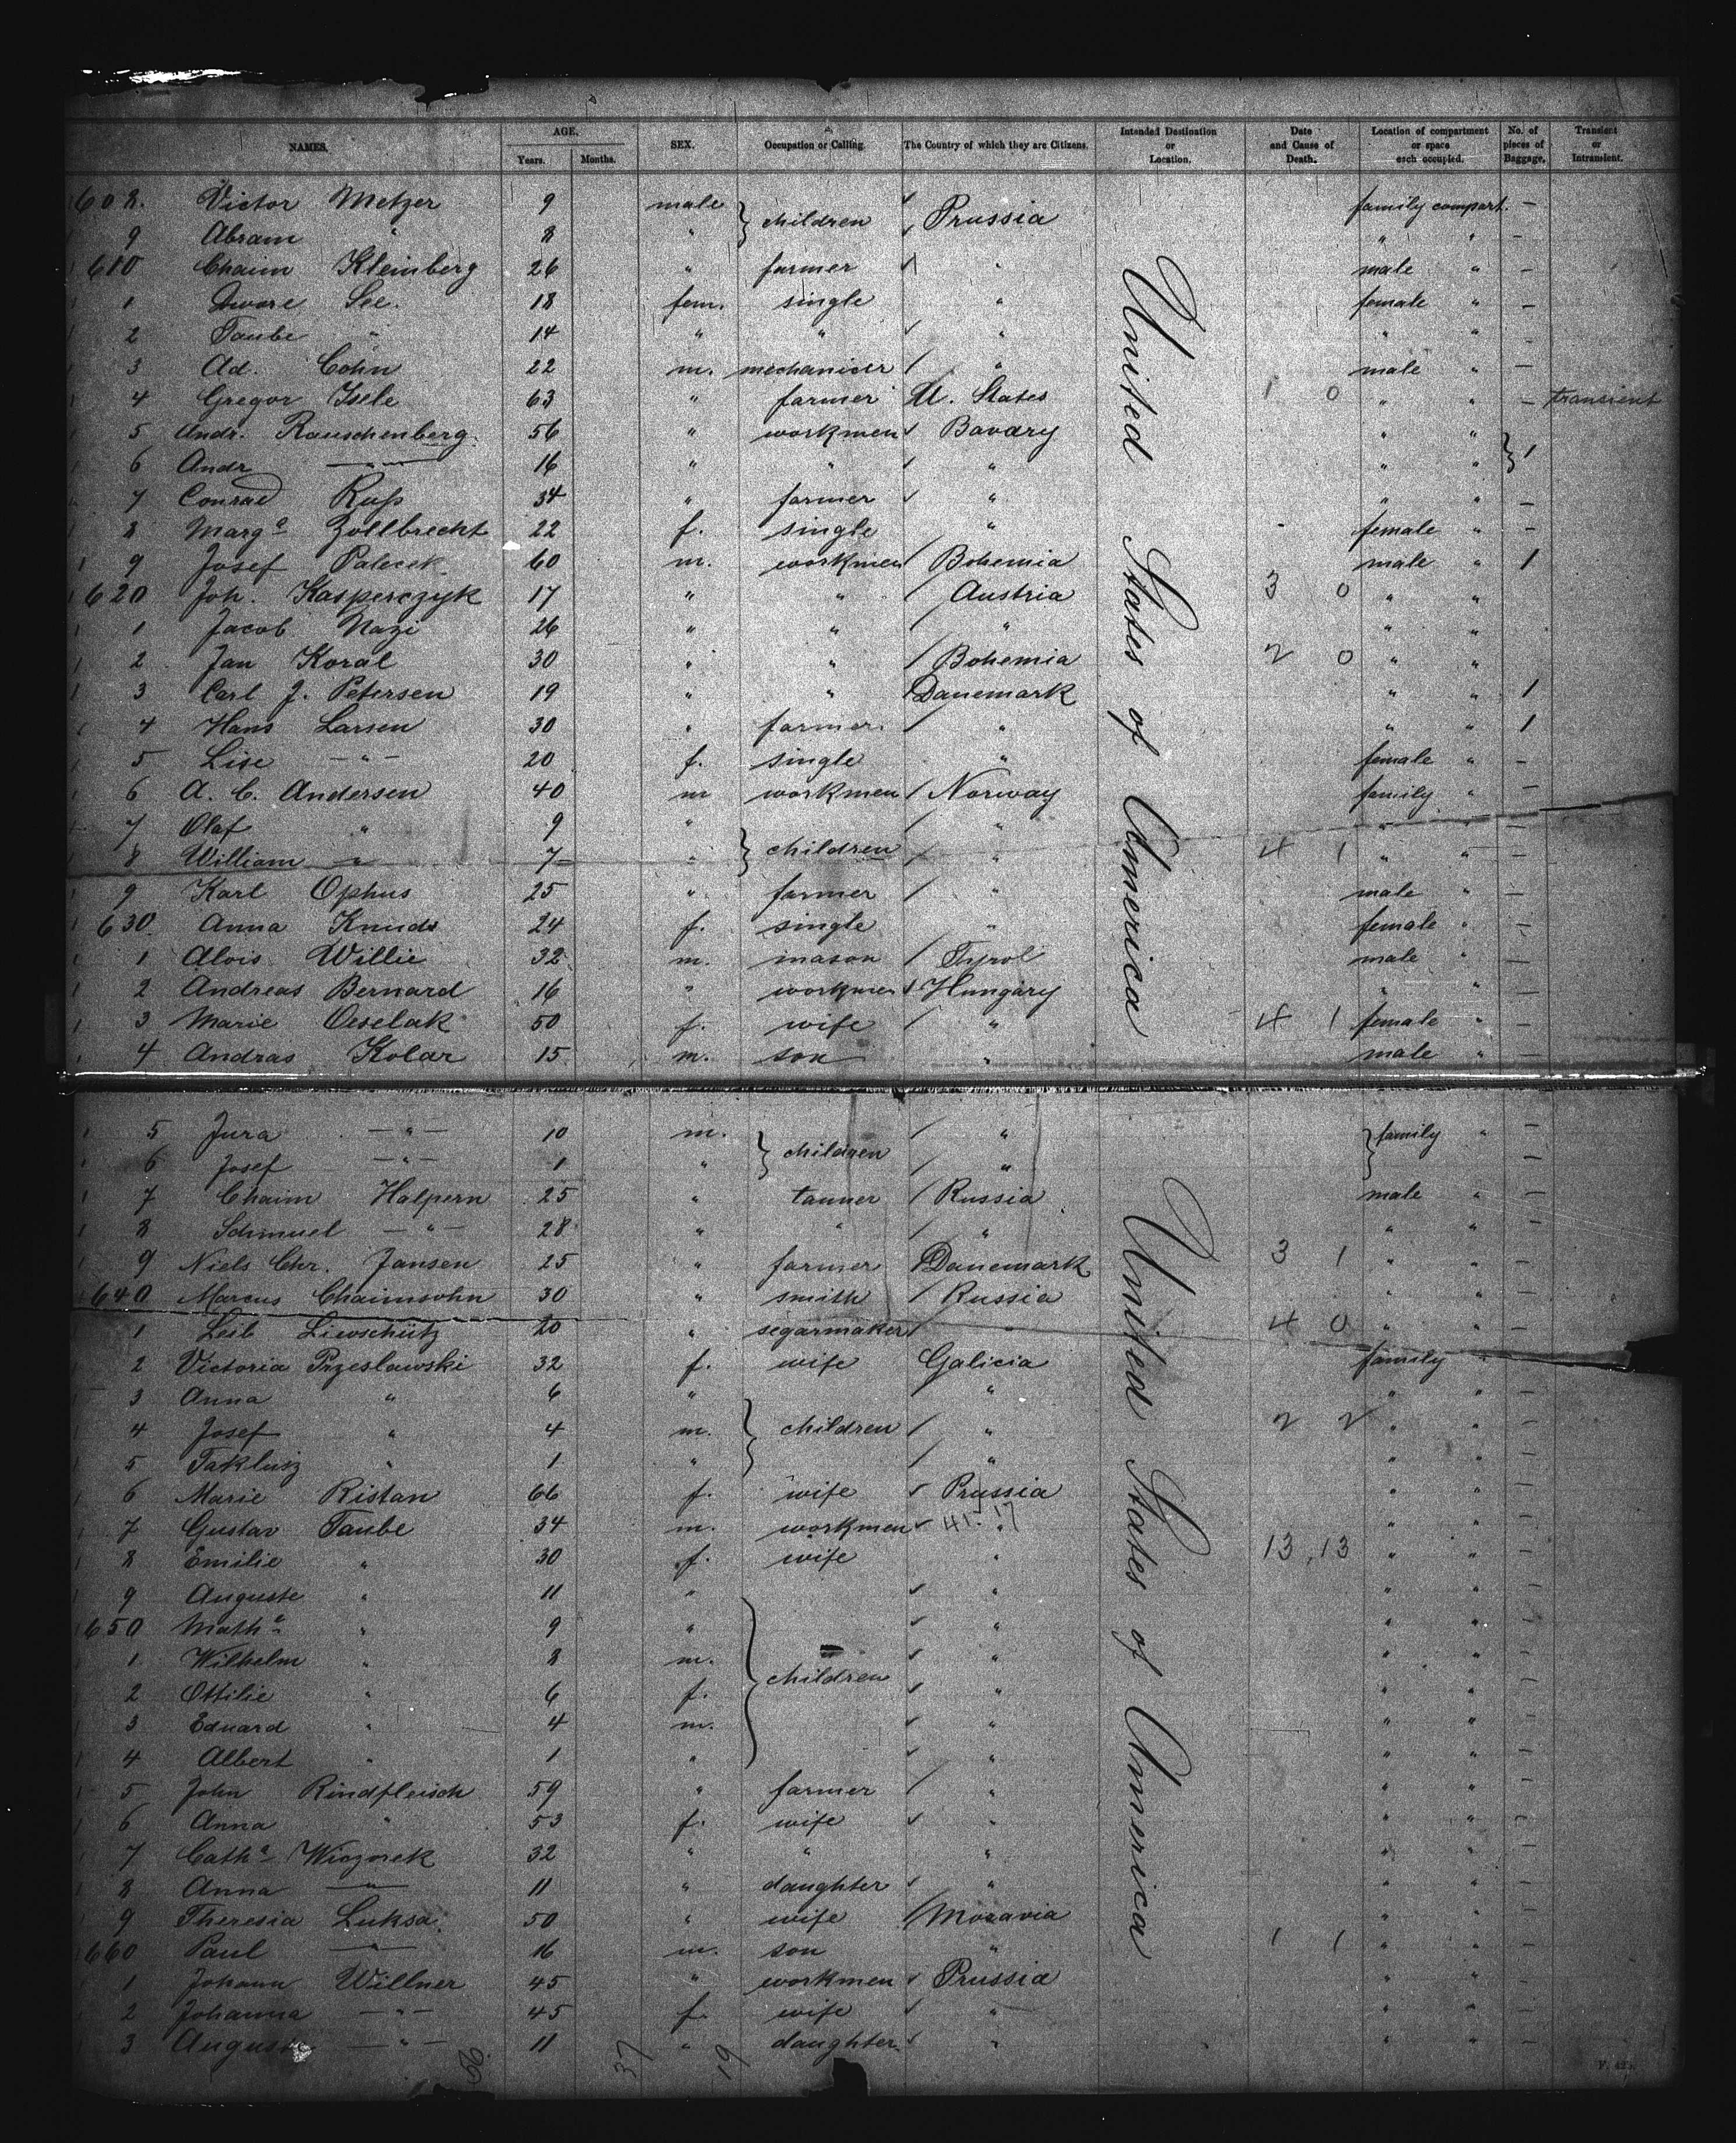 NAMES. AGE. SEX. Occupation or Calling. The Country of which they are Citizens. Intended Destination or Location. Date and Cause of Death. Location of compartment or space each occupied. No. of pieces of Baggage. Transient or Intransient.
Years. Months.
608. Victor Metzer 9 male } children Prussia family compart. —
9 Abram " 8 " " " —
610 Chaim Kleinberg 26 " farmer " male " —
1 Dwore See. 18 fem. single " female " —
2 Taube " 14 " " " " " -
3 Ad. Cohn 22 m. mechanicer " male " —
4 Gregor Isele 63 " farmer U. States 1 0 " " — transient
5 Andr. Rauschenberg 56 " workmen Bavary " " } 1
6 Andr — " — 16 " " " " "
7 Conrad Ruß 34 " farmer " " " —
8 Marga Zollbrecht 22 f. single " female " —
9 Josef Palecek 60 m. workmen Bohemia male " 1
620 Joh. Kasperczyk 17 " " Austria 3 0 " "
1 Jacob Nazi 26 " " " " "
2 Jan Koral 30 " " Bohemia 2 0 " "
3 Carl J. Petersen 19 " " Danemark " " 1
4 Hans Larsen 30 " farmer " " " 1
5 Lise — " — 20 f. single " female " —
6 A. C. Andersen 40 m workmen Norway family " —
7 Olaf " 9 " } children " " " —
8 William " 7 " " 4 1 " " —
9 Karl Ophus 25 " farmer " male " —
630 Anna Knuds 24 f. single " female " —
1 Alois Willie 32 m. mason Tyrol male " —
2 Andreas Bernard 16 " workmen Hungary " " —
3 Marie Oeselak 50 f. wife " 4 1 female " —
4 Andras Kolar 15 m. son " male " —
United States of America
5 Jura — " — 10 m. } children " } family " —
6 Josef — " — 1 " " —
7 Chaim Halpern 25 " tanner Russia male " —
8 Schmuel — " — 28 " " " " " —
9 Niels Chr. Jansen 25 " farmer Danemark 3 1 " " —
640 Marcus Chaimsohn 30 " smith Russia " " —
1 Leib Liwschütz 20 " segarmaker " 4 0 " " —
2 Victoria Przeslawski 32 f. wife Galicia family "
3 Anna " 6 " } children " " " —
4 Josef " 4 m. " 2 2 " " —
5 " 1 " " " " —
6 Marie Ristan 66 f. wife Prussia " " —
7 Gustav Taube 34 m. workmen 41-17 " " " —
8 Emilie " 30 f. wife " 13, 13 " " —
9 Auguste " 11 " } children " " " —
650 Matha " 9 " " " " —
1 Wilhelm " 8 m. " " " —
2 Ottilie " 6 f. " " " —
3 Eduard " 4 m. " " " —
4 Albert " 1 " " " " —
5 John Rindfleisch 59 " farmer " " " —
6 Anna " 53 f. wife " " " —
7 Catha Wiczorek 32 " " " " " —
8 Anna — " — 11 " daughter " " " —
9 Theresia Luksa 50 " wife Moravia " " —
660 Paul — " — 16 m. son " 1 1 " " —
1 Johann Willner 45 " workmen Prussia " " —
2 Johanna — " — 45 f. wife " " " —
3 Auguste — " — 11 " daughter " " " —
United States of America
37 19